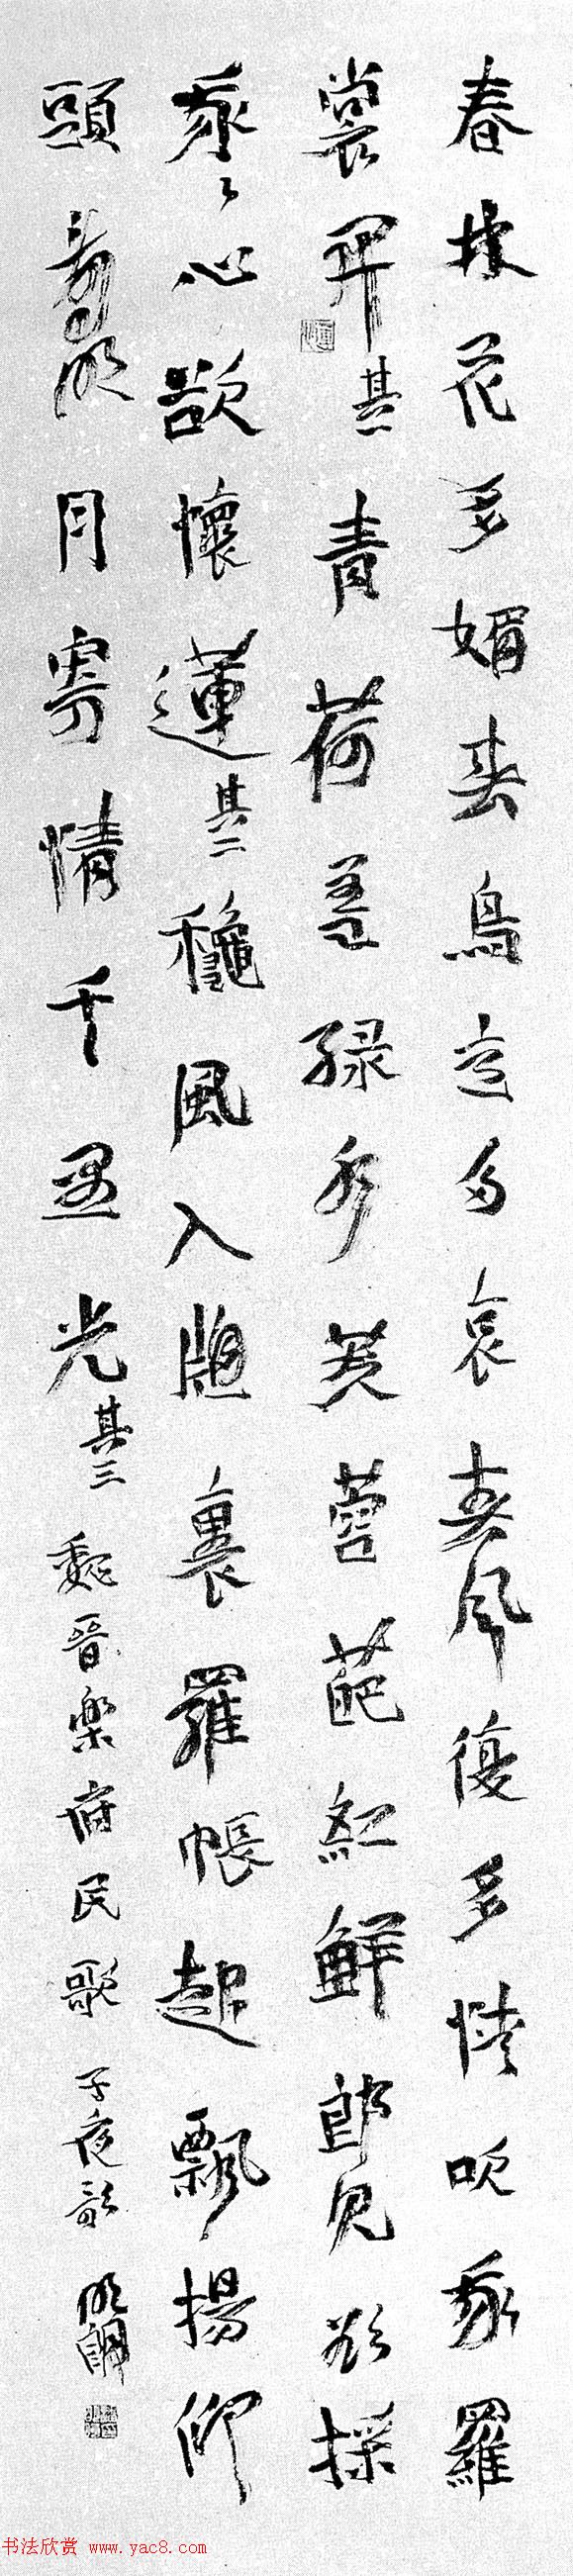 春林花多媚春鳥意多哀春风復多情吹我羅
裳開其一青荷蓋緑水芙蓉葩紅鮮郎見欲採
我〻心欲懷蓮其二龝風入牕裏羅帳起飄揚仰
頭看明月寄情千里光其三魏晋楽府民歌子夜歌
书法欣赏 www.yac8.com